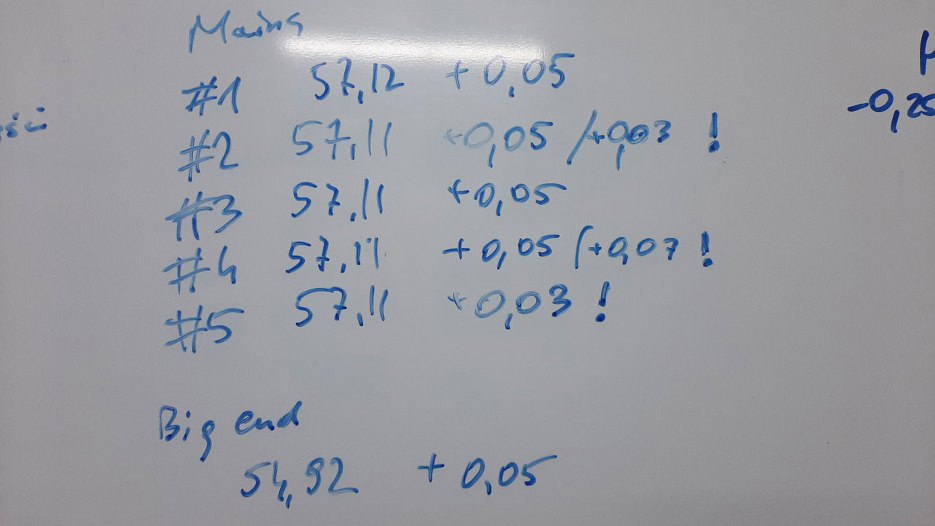 Mains
#1 57,12 +0,05
#2 57,11 +0,05 /+0,03 !
#3 57,11 +0,05
#4 57,11 +0,05 /+0,07 !
#5 57,11 +0,03 !
Big end
54,92 +0,05
-0,25